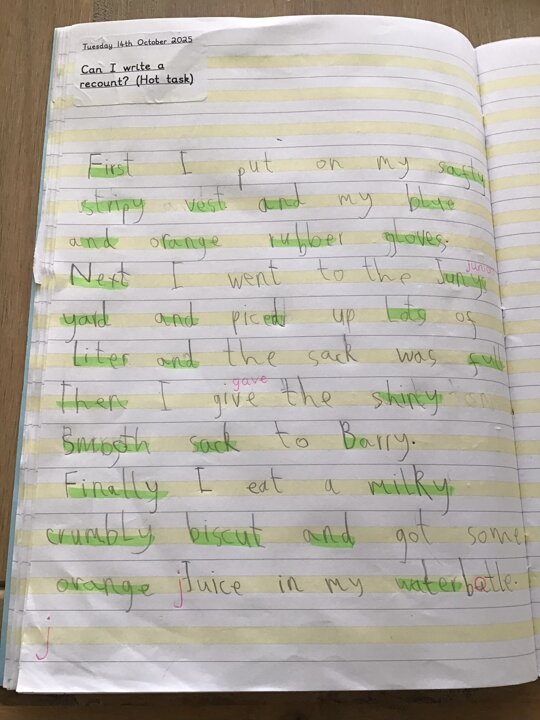 Tuesday 14th October 2025
Can I write a
recount? (Hot task)
First I put on my safty
stripy vest and my blue
and orange rubber gloves.
junior
Next I went to the Juny
yard and piced up Lots of
Liter and the sack was full
gave
Then I give the shiny
Smooth sack to Barry.
Finally I eat a milky
crumbly biscut and got some
orange jJuice in my waterbotle.
j